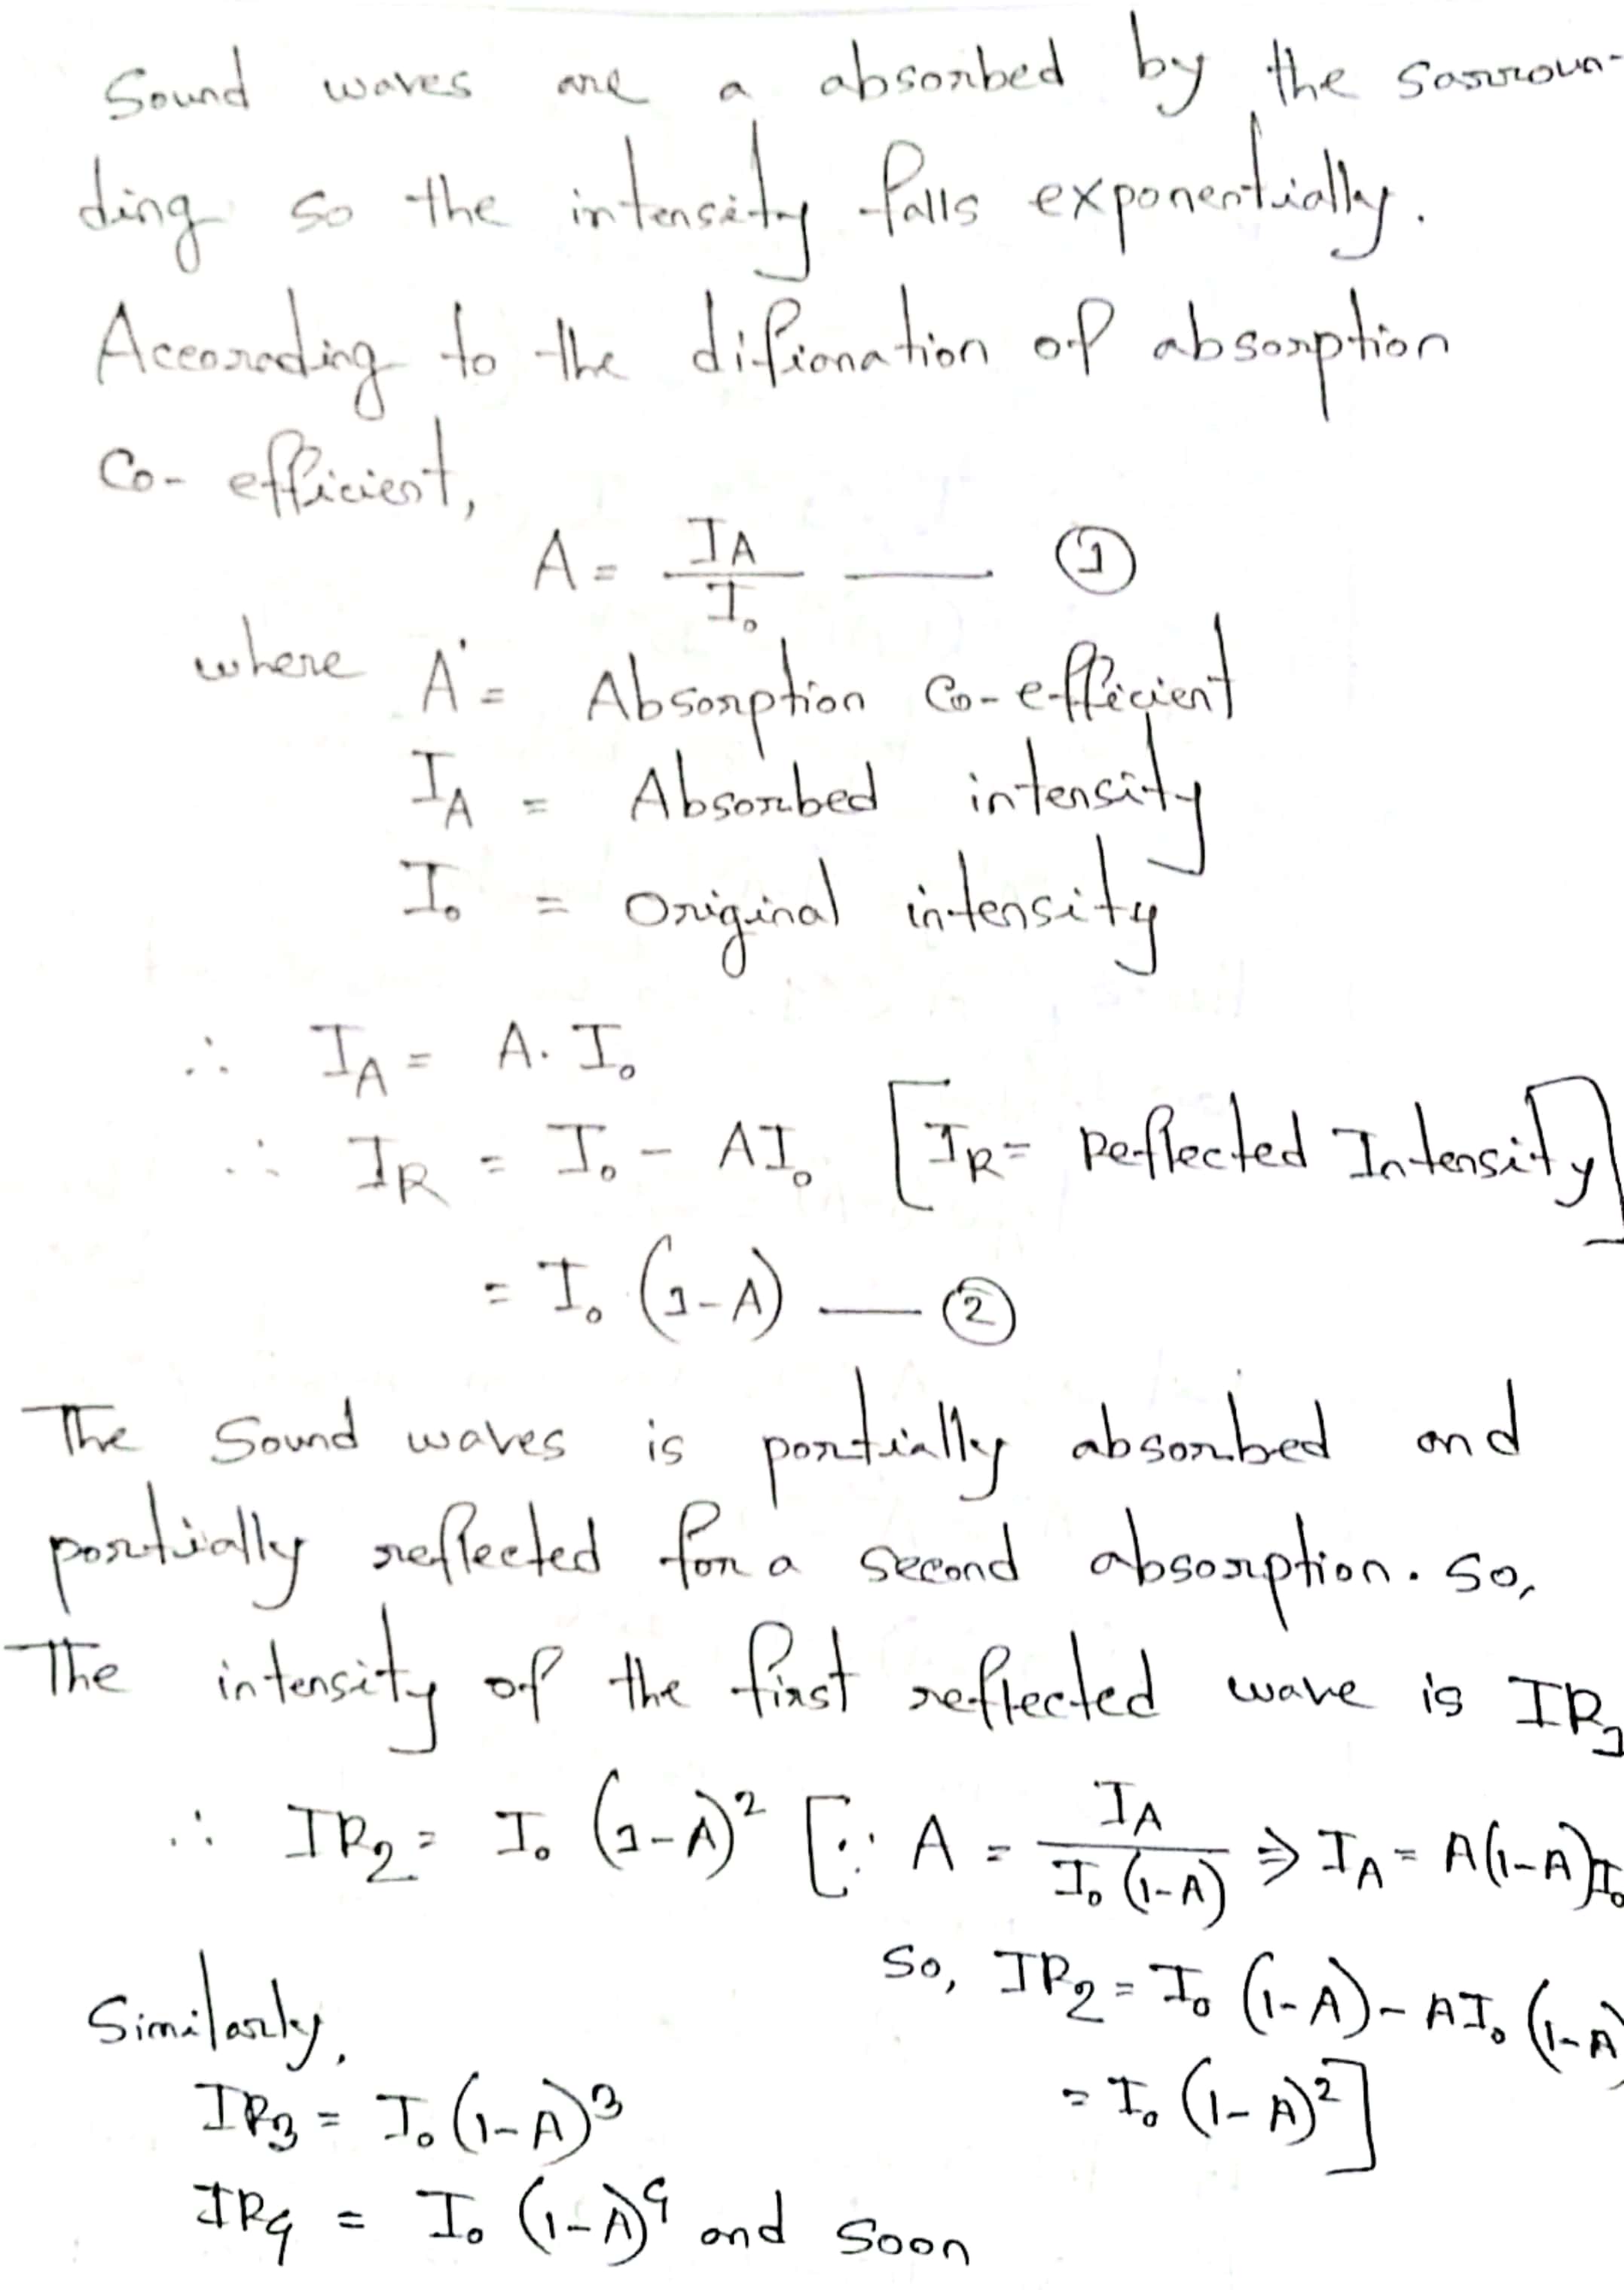 Sound waves are a absorbed by the sarroun-
ding so the intensity falls exponentially.
Accorading to the difionation of absorption
Co-efficient,
A = I_A / I₀ —— ①
where A = Absorption Co-efficient
I_A = Absorbed intensity
I₀ = Original intensity
∴ I_A = A. I₀
∴ I_R = I₀ - AI₀ [I_R = Reflected Intensity]
= I₀ (1-A) — ②
The Sound waves is partially absorbed and
partially reflected for a second absorption. So,
The intensity of the first reflected wave is IR₁
∴ IR₂ = I₀ (1-A)² [∵ A = I_A / I₀ (1-A) ⇒ I_A = A(1-A)I₀
So, IR₂ = I₀ (1-A) - AI₀ (1-A)
= I₀ (1-A)²]
Similarly,
IR₃ = I₀ (1-A)³
IR₄ = I₀ (1-A)⁴ and soon